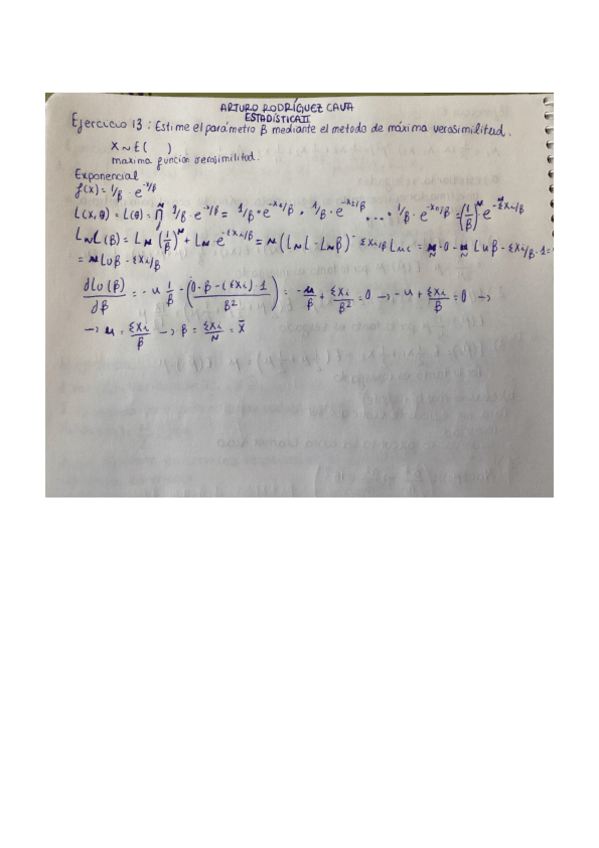 ARTURO RODRÍGUEZ CAVA
ESTADÍSTICA II
Ejercicio 13: Estime el parámetro β mediante el metodo de máxima verosimilitud.
X ~ E( )
maxima funcion verosimilitud.
Exponencial
f(x) = 1/β · e^-x/β
L(x,θ) = L(θ) = ∏ 1/β · e^-x/β = 1/β · e^-x₁/β · 1/β · e^-x₂/β ... · 1/β · e^-xn/β = (1/β)^n · e^-Σxi/β
Ln L(β) = Ln (1/β)^n + Ln · e^-Σxi/β = n (Ln 1 - Ln β) - Σxi/β Ln e = n · 0 - n Ln β - Σxi/β · 1 =
= n Ln β - Σxi/β
dLn(β)/dβ = -n 1/β - (0·β - (Σxi)·1 / β²) = -n/β + Σxi/β² = 0 → -n + Σxi/β = 0 →
→ n = Σxi/β → β = Σxi/n = x̄